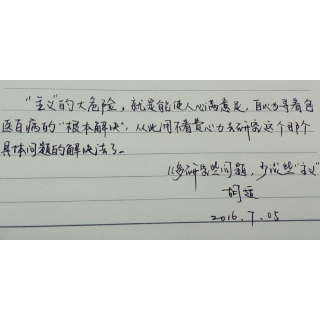 “主义”的大危险，就是能使人心满意足，自以为寻着包
医百病的“根本解决”，从此用不着费心力去研究这个那个
具体问题的解决法了。
《多研究些问题，少谈些“主义”
胡适
2016.7.05